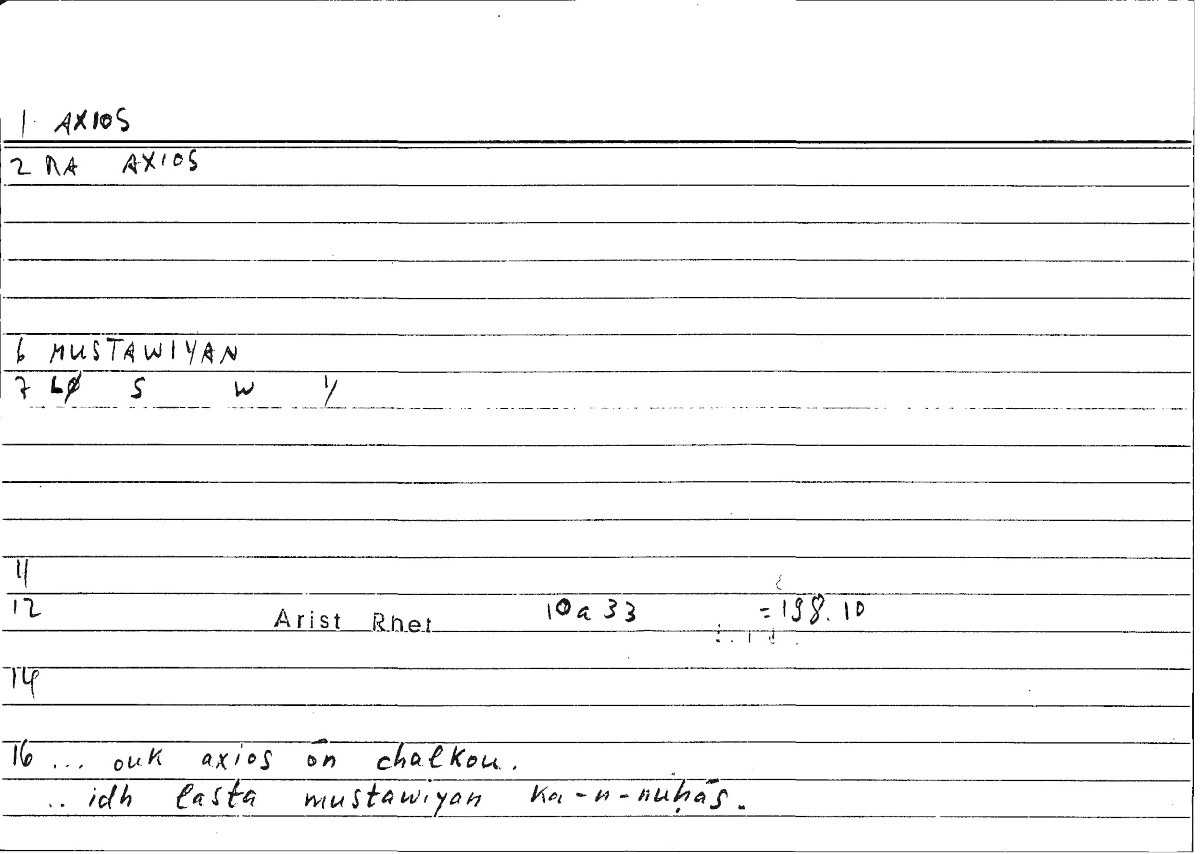 1. AXIOS
2 RA AXIOS
6 MUSTAWIYAN
7 LØ S W Y
11
12 Arist Rhet 10a33 = 198.10
14
16 ... ouk axios ōn chalkou.
.. idh lasta mustawiyan ka-n-nuḥās.